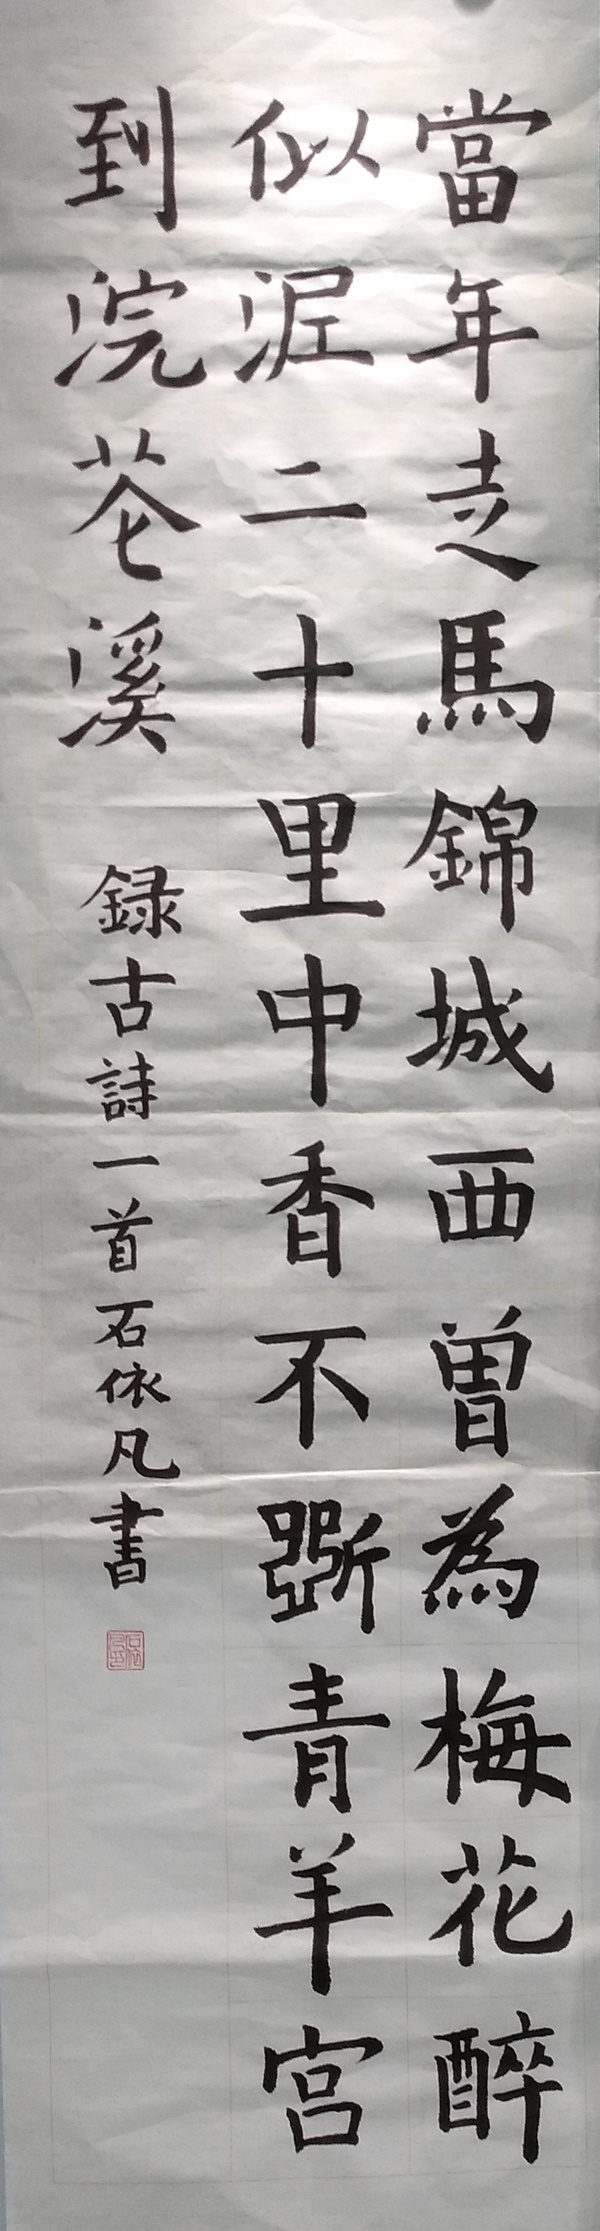 當年走馬錦城西曽為梅花醉
似泥二十里中香不斷青羊宫
到浣花溪
録古詩一首石依凡書